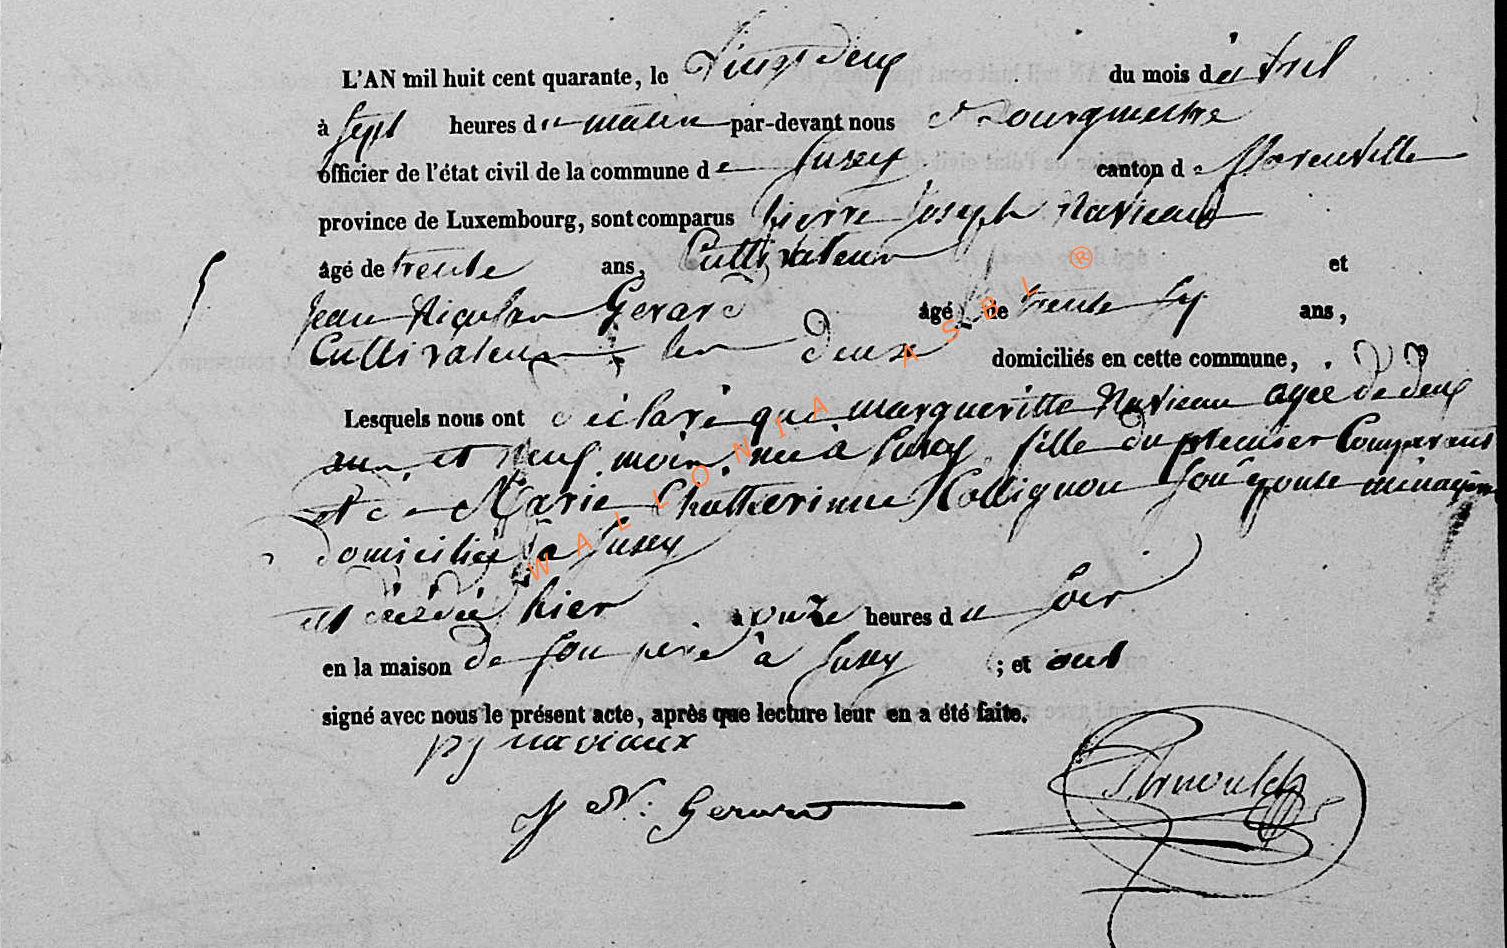 L'AN mil huit cent quarante, le Vingt deux du mois d'avril
à sept heures du matin par-devant nous Bourgmestre
officier de l'état civil de la commune de Suxy canton de Florenville
province de Luxembourg, sont comparus pierre Joseph Naviaux
âgé de trente ans, Cultivateur et
Jean Nicolas Gerard âgé de trente six ans,
Cultivateur les deux domiciliés en cette commune,
Lesquels nous ont déclaré que margueritte Naviaux agée de deux
ans et neuf mois née à Suxy fille du premier Comparant
et de Marie Chatherinne Collignon son épouse ménagère
domiciliée à Suxy
est décédée hier à onze heures du soir
en la maison de son père à Suxy ; et ont
signé avec nous le présent acte, après que lecture leur en a été faite.
pj naviaux
J N: Gerard
WALLONIA ASBL ®